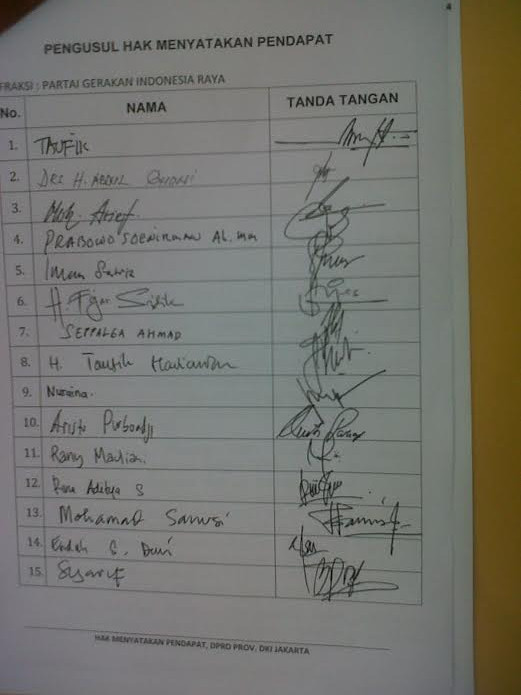 4
PENGUSUL HAK MENYATAKAN PENDAPAT
FRAKSI : PARTAI GERAKAN INDONESIA RAYA
No. NAMA TANDA TANGAN
1. TAUFIK
2. Drs H. ABDUL GHONI
3. Moh. Arief
4. PRABOWO SOENIRMAN AL.
5. Iman Satria
6. H. Fajar Sidik
7. SEPPALGA AHMAD
8. H. Taufik Hadiawan
9. Nuraina.
10. Aristo Purboadji
11. Rany Mauliani
12. Rina Aditya S
13. Mohamad Sanusi
14. Endah S. Dewi
15. Syarif
HAK MENYATAKAN PENDAPAT, DPRD PROV. DKI JAKARTA